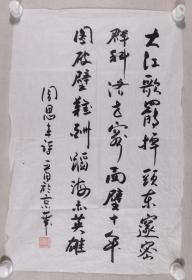 大江歌罷掉头东邃密
群科济世窮面壁十年
图破壁難酬蹈海亦英雄
周恩来詩 於京華